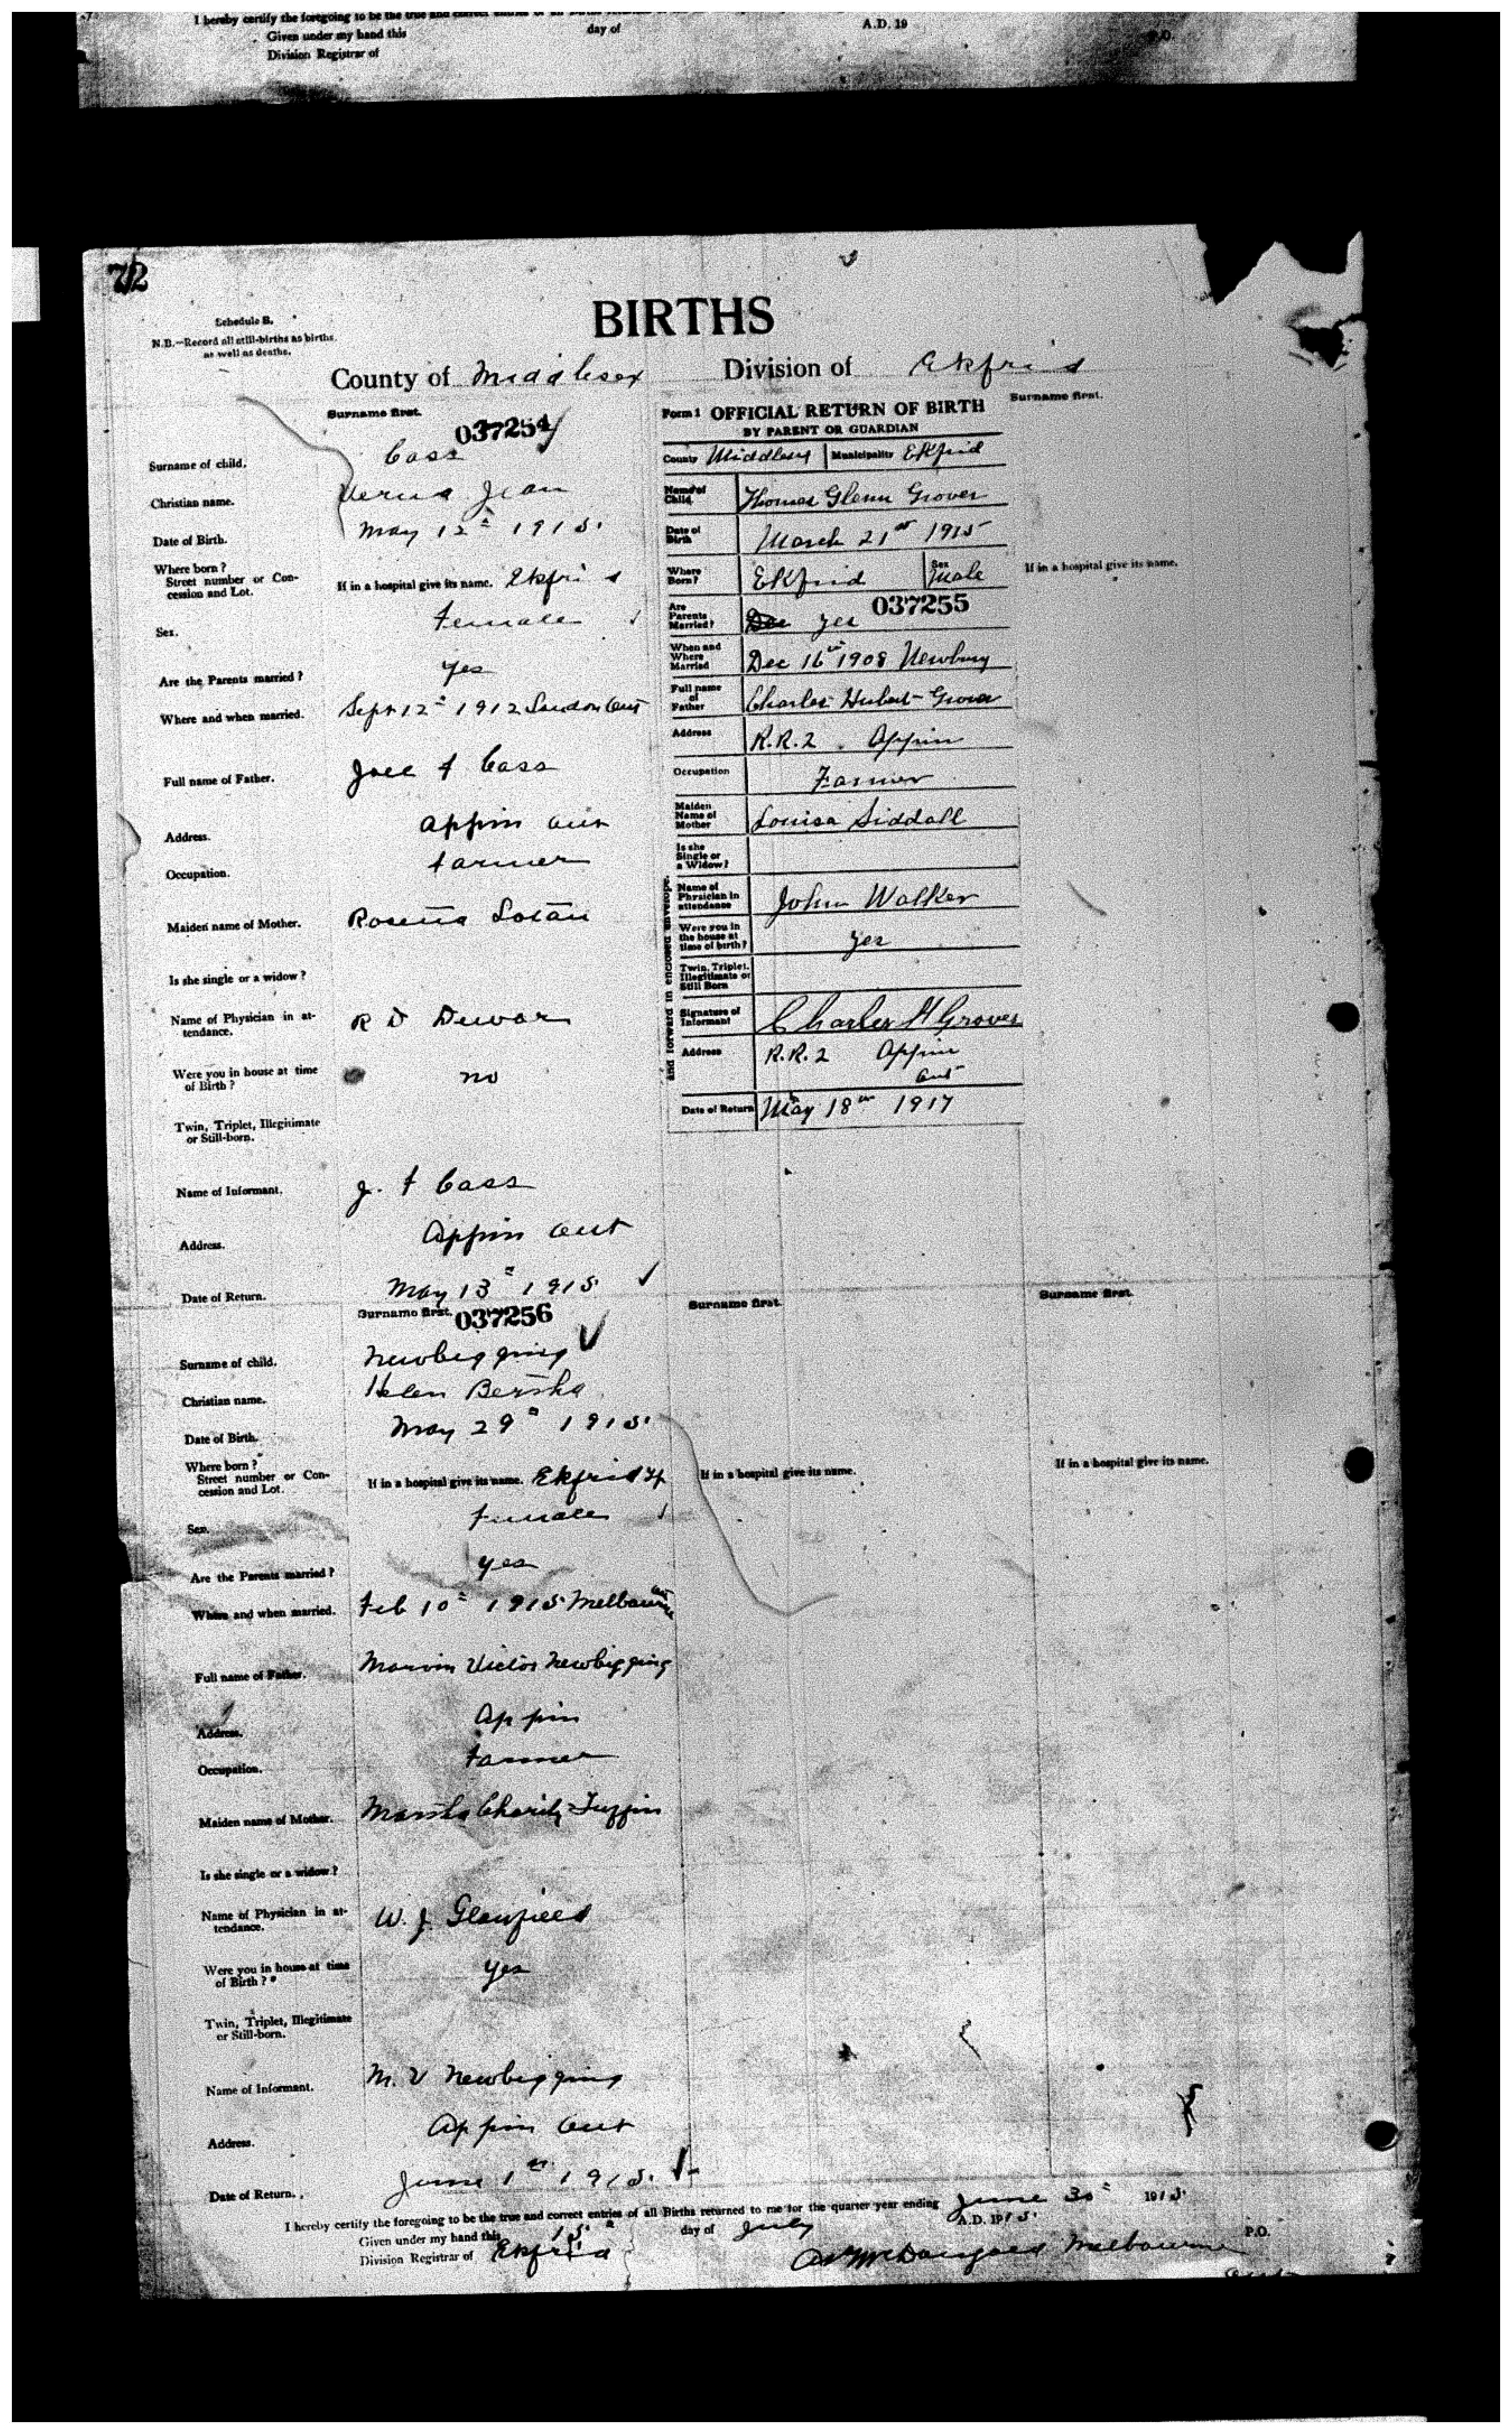 I hereby certify the foregoing to be the true and correct entries of all Births
Given under my hand this day of A.D. 19
Division Registrar of P.O.
72
Schedule B.
N.B.—Record all still-births as births,
as well as deaths.
BIRTHS
County of Middlesex Division of Ekfrid
Surname first.
037254
Surname of child. Cass
Christian name. Verna Jean
Date of Birth. May 12th 1915.
Where born?
Street number or Con-
cession and Lot. If in a hospital give its name. Ekfrid
Sex. Female
Are the Parents married? yes
Where and when married. Sept 12th 1912 London Ont
Full name of Father. Joel F Cass
Address. Appin Ont
Occupation. Farmer
Maiden name of Mother. Rosena
Is she single or a widow?
Name of Physician in at-
tendance. R D Dewar
Were you in house at time
of Birth? no
Twin, Triplet, Illegitimate
or Still-born.
Name of Informant. J. F Cass
Address. Appin Ont
Date of Return. May 13th 1915.
Form 1 OFFICIAL RETURN OF BIRTH
BY PARENT OR GUARDIAN
County Middlesex Municipality Ekfrid
Name of
Child Thomas Glenn Grover
Date of
Birth March 21st 1915
Where
Born? Ekfrid Sex Male
037255
Are
Parents
Married? Dec yes
When and
Where
Married Dec 16th 1908 Newbury
Full name
of
Father Charles Hubert Grover
Address R.R.2. Appin
Occupation Farmer
Maiden
Name of
Mother Louisa Siddall
Is she
Single or
a Widow?
Name of
Physician in
attendance John Walker
Were you in
the house at
time of birth? Yes
Twin, Triplet,
Illegitimate or
Still Born
Signature of
Informant Charles H Grover
Address R.R.2 Appin
Ont
Date of Return May 18th 1917
and forward in enclosed envelope.
Surname first.
If in a hospital give its name.
Surname first. 037256
Surname of child. Newbigging
Christian name. Helen Bertha
Date of Birth. May 29th 1915.
Where born?
Street number or Con-
cession and Lot. If in a hospital give its name. Ekfrid Tp
Sex. Female
Are the Parents married? yes
Where and when married. Feb 10th 1915 Melbourne Ont
Full name of Father. Marvin Victor Newbigging
Address. Appin
Occupation. Farmer
Maiden name of Mother. Martha Charity
Is she single or a widow?
Name of Physician in at-
tendance. W. J. Glanfield
Were you in house at time
of Birth? yes
Twin, Triplet, Illegitimate
or Still-born.
Name of Informant. M. V Newbigging
Address. Appin Ont
Date of Return. June 1st 1915.
Surname first.
If in a hospital give its name.
Surname first.
If in a hospital give its name.
I hereby certify the foregoing to be the true and correct entries of all Births returned to me for the quarter year ending June 30th 1915.
Given under my hand this 15th day of July A.D. 1915.
Division Registrar of Ekfrid A P McDougald Melbourne P.O.
Ont